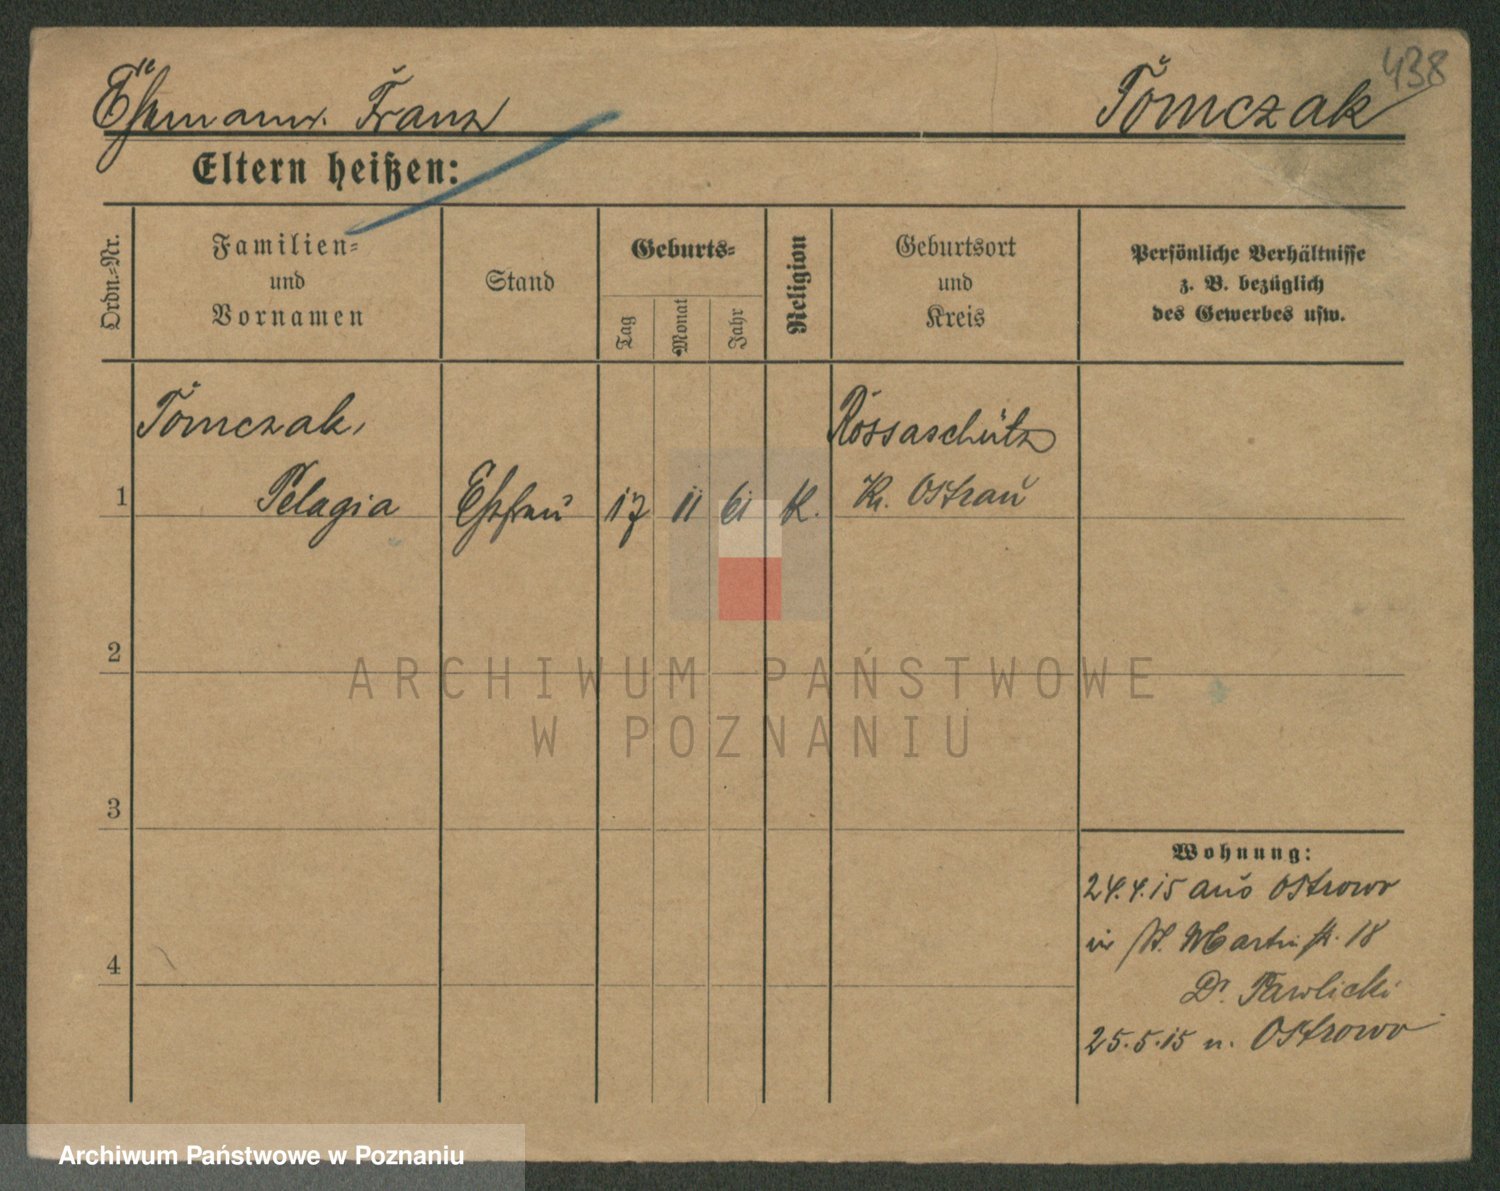 438
Ehemann. Franz Tomczak
Eltern heißen:
Ordn.-Nr.
Familien-
und
Vornamen
Stand
Geburts-
Tag
Monat
Jahr
Religion
Geburtsort
und
Kreis
Persönliche Verhältnisse
z. B. bezüglich
des Gewerbes usw.
1
Tomczak,
Pelagia
Ehefrau
17
11
61
K.
Rossaschütz
Kr. Ostrau
2
3
4
Wohnung:
24.4.15 aus Ostrowo
in St. Martin st. 18
Dr. Pawlicki
25.5.15 n. Ostrowo
ARCHIWUM PAŃSTWOWE
W POZNANIU
Archiwum Państwowe w Poznaniu